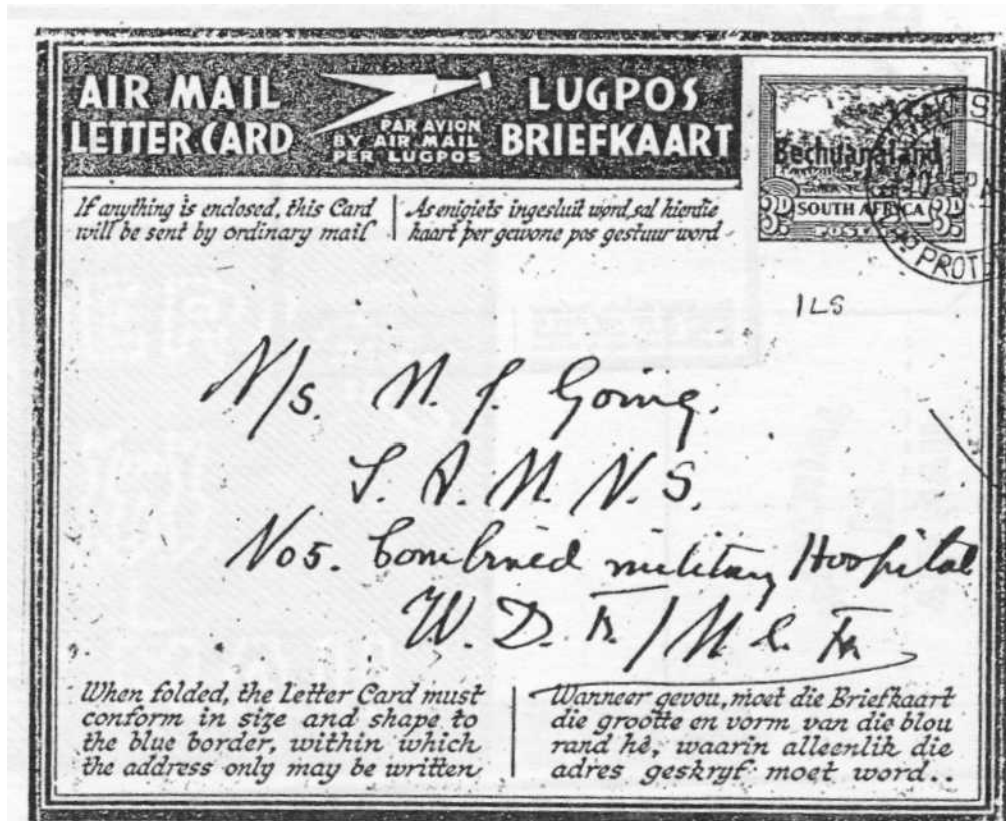 AIR MAIL
LETTER CARD
PAR AVION
BY AIR MAIL
PER LUGPOS
LUGPOS
BRIEFKAART
Bechuanaland
3D SOUTH AFRICA 3D
POSTA
PROTE
If anything is enclosed, this Card
will be sent by ordinary mail
As enigiets ingesluit word, sal hierdie
kaart per gewone pos gestuur word
ILS
N/s. N. J. Going.
S. A. M. N. S.
No 5. Combined military Hospital
W. D. F. / M. E. F.
When folded, the Letter Card must
conform in size and shape to
the blue border, within which
the address only may be written
Wanneer gevou, moet die Briefkaart
die grootte en vorm van die blou
rand hê, waarin alleenlik die
adres geskryf moet word..